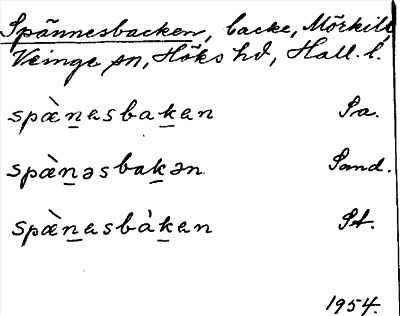 Spännesbacken, backe, Mörkilt,
Veinge sn, Höks hd, Hall. l.
spæ̀n̲asbak̲an Pa.
spæ̀n̲əsbak̲ən Sand.
spæ̀n̲asbàk̲an St.
1954.